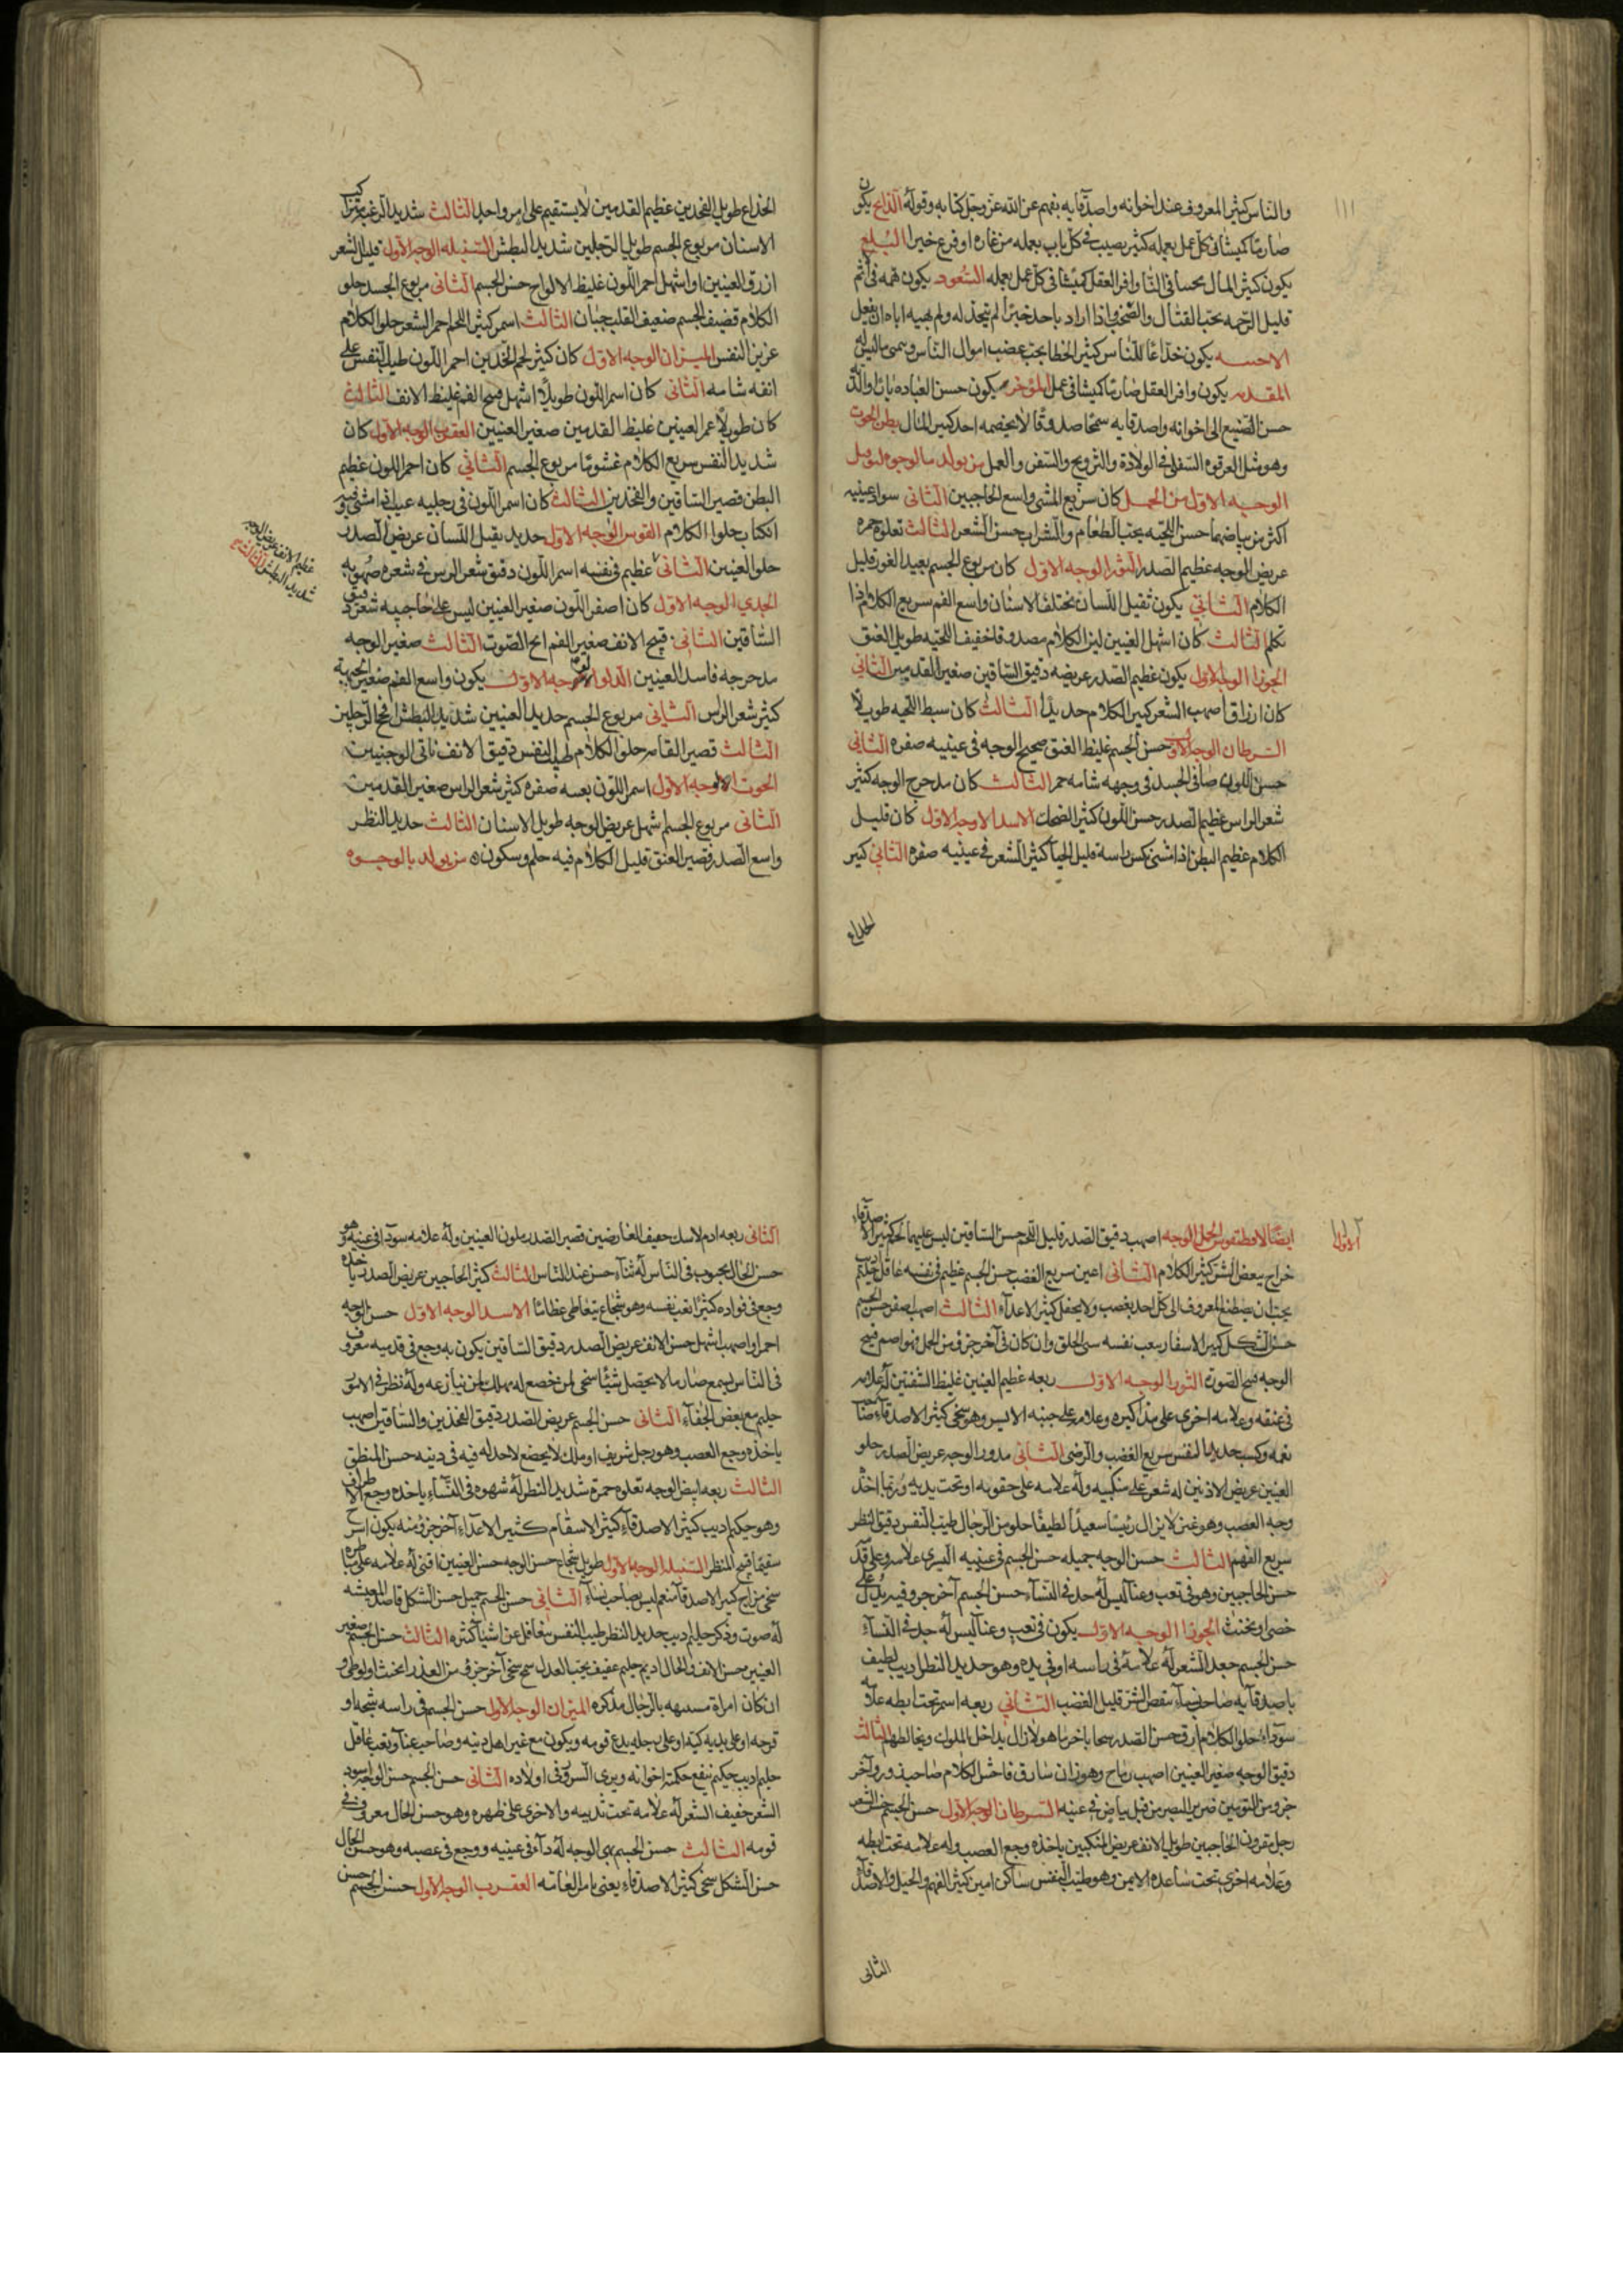 ١١١
والناس كثير المعروف عند اخوانه واصدقايه يفهم عن الله عز وجل كتابه وقوله الذابح يكون
صارما كميشا فى كل عمل يعمله كثير يصيب فى كل باب يعمله من غاره او فرع خيرا البلع
يكون كثير المال محسا فى النا وافر العقل كميشا فى كل عمل يعمله السعود يكون همه فى اثم
قليل الرحمه يحب القتال والصخب واذا اراد باحد خيرا لم يتخذ له ولم يهبه اياه ان يفعل
الاحسه يكون خداعا للناس كثير الخطا يحب غضب اموال الناس ويسمى ماليس له
المقدم يكون وافر العقل صارما كميشا فى عمل الموخر يكون حسن العباده بارا والديه
حسن الصنيع الى اخوانه واصدقايه سمحا صدوقا لا يخصمه احد كبير المال بطن الحوت
وهو مثل العرقوه السفلى فى الولادة والتزويج والسفر والعمل من يولد بالوجوه
الوجه الاول من الحمل كان سريع المشى واسع الحاجبين الثانى سواد عينيه
اكثر من بياضهما حسن اللحيه يحب الطعام والشراب حسن الشعر الثالث تعلوه حمره
عريض الوجه عظيم الصدر الثور الوجه الاول كان مربوع الجسم بعيد الغور قليل
الكلام الثانى يكون ثقيل اللسان مختلف الاسنان واسع الفم سريع الكلام واذا
تكلم الثالث كان اشهل العينين لين الكلام مصدوقا خفيف اللحيه طويل العنق
الجوزا الوجه الاول يكون عظيم الصدر عريضه دقيق الساقين صغير القدمين الثانى
كان ازرق اصهب الشعر كبير الكلام حديدا الثالث كان سبط اللحيه طويلا
السرطان الوجه الاول حسن الجسم غليظ العنق صحيح الوجه فى عينيه صفره الثانى
حسن اللون صافى الجسد فى وجهه شامه حمرا الثالث كان مدحرج الوجه كثير
شعر الراس عظيم الصدر حسن اللون كثير الضحك الاسد الوجه الاول كان قليل
الكلام عظيم البطن اذا مشى نكس راسه قليل الحيا كثير الشعر فى عينيه صفره الثانى كبير
الخداع
الخداع طويل الفخدين عظيم القدمين لا يستقيم على امر واحد الثالث شديد الرغبه
الاسنان مربوع الجسم طويل الرجلين شديد البطش السنبله الوجه الاول قليل الشعر
ازرق العينين او اشهل احمر اللون غليظ الالواح حسن الجسم الثانى مربوع الجسد حلو
الكلام قضيف الجسم ضعيف القلب جبان الثالث اسمر كثير اللحم احمر الشعر حلو الكلام
عزيز النفس الميزان الوجه الاول كان كثير لحم الخدين احمر اللون طيب النفس على
انفه شامه الثانى كان اسمر اللون طويلا اشهل قبيح الفم غليظ الانف الثالث
كان طويلا عمر العينين غليظ القدمين صغير العينين العقرب الوجه الاول كان
شديد النفس سريع الكلام غشوما مربوع الجسم الثانى كان احمر اللون عظيم
البطن قصير الساقين والفخدين الثالث كان اسمر اللون فى رجليه عيب اذا مشى
انكباب حلو الكلام القوس الوجه الاول حديد ثقيل اللسان عريض الصدر
حلو العينين الثانى عظيم فى نفسه اسمر اللون دقيق شعر الراس فى شعره صهوبه
عظيم الانف عريض الوجه
شديد البطش الثالث
الجدى الوجه الاول كان اصفر اللون صغير العينين ليس على حاجبيه شعر دقيق
الساقين الثانى قبيح الانف صغير الفم ابح الصوت الثالث صغير الوجه
مدحرجه فاسد العينين الدلو الوجه الاول يكون واسع الفم صغير الجبهة
كثير شعر الراس الثانى مربوع الجسم حديد العينين شديد البطش الحج الرجلين
الثالث قصير القامه حلو الكلام طيب النفس دقيق الانف ناتى الوجنتين
الحوت الوجه الاول اسمر اللون بعسه صفره كثير شعر الراس صغير القدمين
الثانى مربوع الجسم اشهل عريض الوجه طويل الاسنان الثالث حديد النظر
واسع الصدر قصير العنق قليل الكلام فيه حلم وسكون من يولد بالوجوه
ايضا الحمل الوجه الاول اصهب دقيق الصدر قليل اللحم حسن الساقين ليس عليهما لحم كثير الاصدقاء
خراج ببعض الشر كثير الكلام الثانى اعين سريع الغضب حسن الجسم عظيم فى نفسه غافل اديب حليم
يحب ان يصطنع المعروف الى كل احد يغضب ولا يحفل كثير الاعداء الثالث اصهب اصفر حسن الجسم
حسن الشكل كبير الاسفار يتعب نفسه سى الخلق وان كان فى آخر جزو من الحمل فهو اصم قبيح
الوجه قبيح الصوت الثور الوجه الاول ربعه عظيم العينين غليظ الشفتين له علامه
فى عنقه وعلامه اخرى على مذاكيره وعلامه على جنبه الايسر وهو سخى كثير الاصدقاء صاحب
نعمه وكسب حديد النفس سريع الغضب والرضى الثانى مدور الوجه عريض الصدر حلو
العينين عريض الاذنين له شعر على منكبيه وله علامه على حقويه او تحت يديه وربما اخذه
وجع العصب وهو غنى لا يزال رئيسا سعيدا لطيفا حلو من الرجال طيب النفس دقيق النظر
سريع الفهم الثالث حسن الوجه جميله حسن الجسم فى عينيه اليسرى علامه
حسن الحاجبين وهو فى تعب وعنا ليس له حد فى النساء حسن الجسم آخر جزو فيه يدل على
خصى او مخنث الجوزا الوجه الاول يكون فى تعب وعنا ليس له جد فى النساء
حسن الجسم جعد الشعر له علامه فى راسه او فى يده وهو حديد النظر اديب لطيف
باصدقايه صاحب نساء يبغض الشر قليل الغضب الثانى ربعه اسمر تحت ابطه علامه
سوداء حلو الكلام ازرق حسن الصدر لا يزال يداخل الملوك ويخالطهم الثالث
دقيق الوجه صغير العينين اصهب رماح وهو زان سارق فاحش الكلام صاحب زور وآخر
جزو من التومين ضرير البصر من قبل بياض فى عينه السرطان الوجه الاول حسن الجسم حسن الشعر
رجل مقرون الحاجبين طويل الانف عريض المنكبين ياخذه وجع العصب وله علامه تحت ابطه
وعلامه اخرى تحت ساعده الايمن وهو طيب النفس ساكن امين كثير الفهم والحيل والاصدقاء
الثانى
الثانى ربعه ادم خفيف العارضين قصير الصدر ملون العينين وله علامه سودا فى عينيه وهو
حسن الحال محبوب فى الناس له ثناء حسن عند الناس الثالث كثير الحاجبين عريض الصدر ياخذه
وجع فى فواده كثيرا يتعب نفسه وهو شجاع يتعاطى عظائما الاسد الوجه الاول حسن الوجه
احمر او اصهب اشهل حسن الانف عريض الصدر دقيق الساقين يكون به وجع فى قدميه معروف
فى الناس يسمع صارما لا يحصل شيا سخى لمن خضع له مهلك لمن ينازعه وله نظر فى الامور
حليم مع بعض الجفاء الثانى حسن الجسم عريض الصدر دقيق الفخذين والساقين اصهب
ياخذه وجع العصب وهو رجل شريف او ملك لا يخضع لاحد له فيه فى دينه حسن المنطق
الثالث ربعه ابيض الوجه تعلوه حمرة شديد النظر له شهوه فى النساء ياخذه وجع الاطراف
وهو حكيم اديب كثير الاصدقاء كثير الاسقام كثير الاعداء آخر جزو منه يكون
سقيما قبيح المنظر السنبله الوجه الاول طويل شجاع حسن الوجه حسن العينين اقنى له علامه على
سخى مزاح كثير الاصدقاء منعم ليس بصاحب نساء الثانى حسن الجسم جميل حسن الشكل قاصد المعيشه
له صوت وذكر حليم اديب حديد النظر طيب النفس يتغافل عن اشيا كثيره الثالث حسن الجسم صغير
العينين حسن الانف والحال اديم حليم عفيف يحب العدل سمح سخى آخر جزو من العذرا مخنث او لوطى و
ان كان امراة متشبهه بالرجال مذكره الميزان الوجه الاول حسن الجسم فى راسه شجه او
قرحه او على يديه كيه او على رجليه يدع قومه ويكون مع غير اهل دينه وصاحب عنا وتعب غافل
حليم اديب حكيم ينفع حكمته اخوانه ويرى السرور فى اولاده الثانى حسن الجسم حسن الوجه اسود
الشعر خفيف الشعر له علامه تحت ثدييه والاخرى على ظهره وهو حسن الحال معروف فى
قومه الثالث حسن الجسم بهى الوجه له داء فى عينيه ووجع فى عصبه وهو حسن الحال
حسن الشكل سخى كثير الاصدقاء يعنى بامر العامه العقرب الوجه الاول حسن الجسم حسن